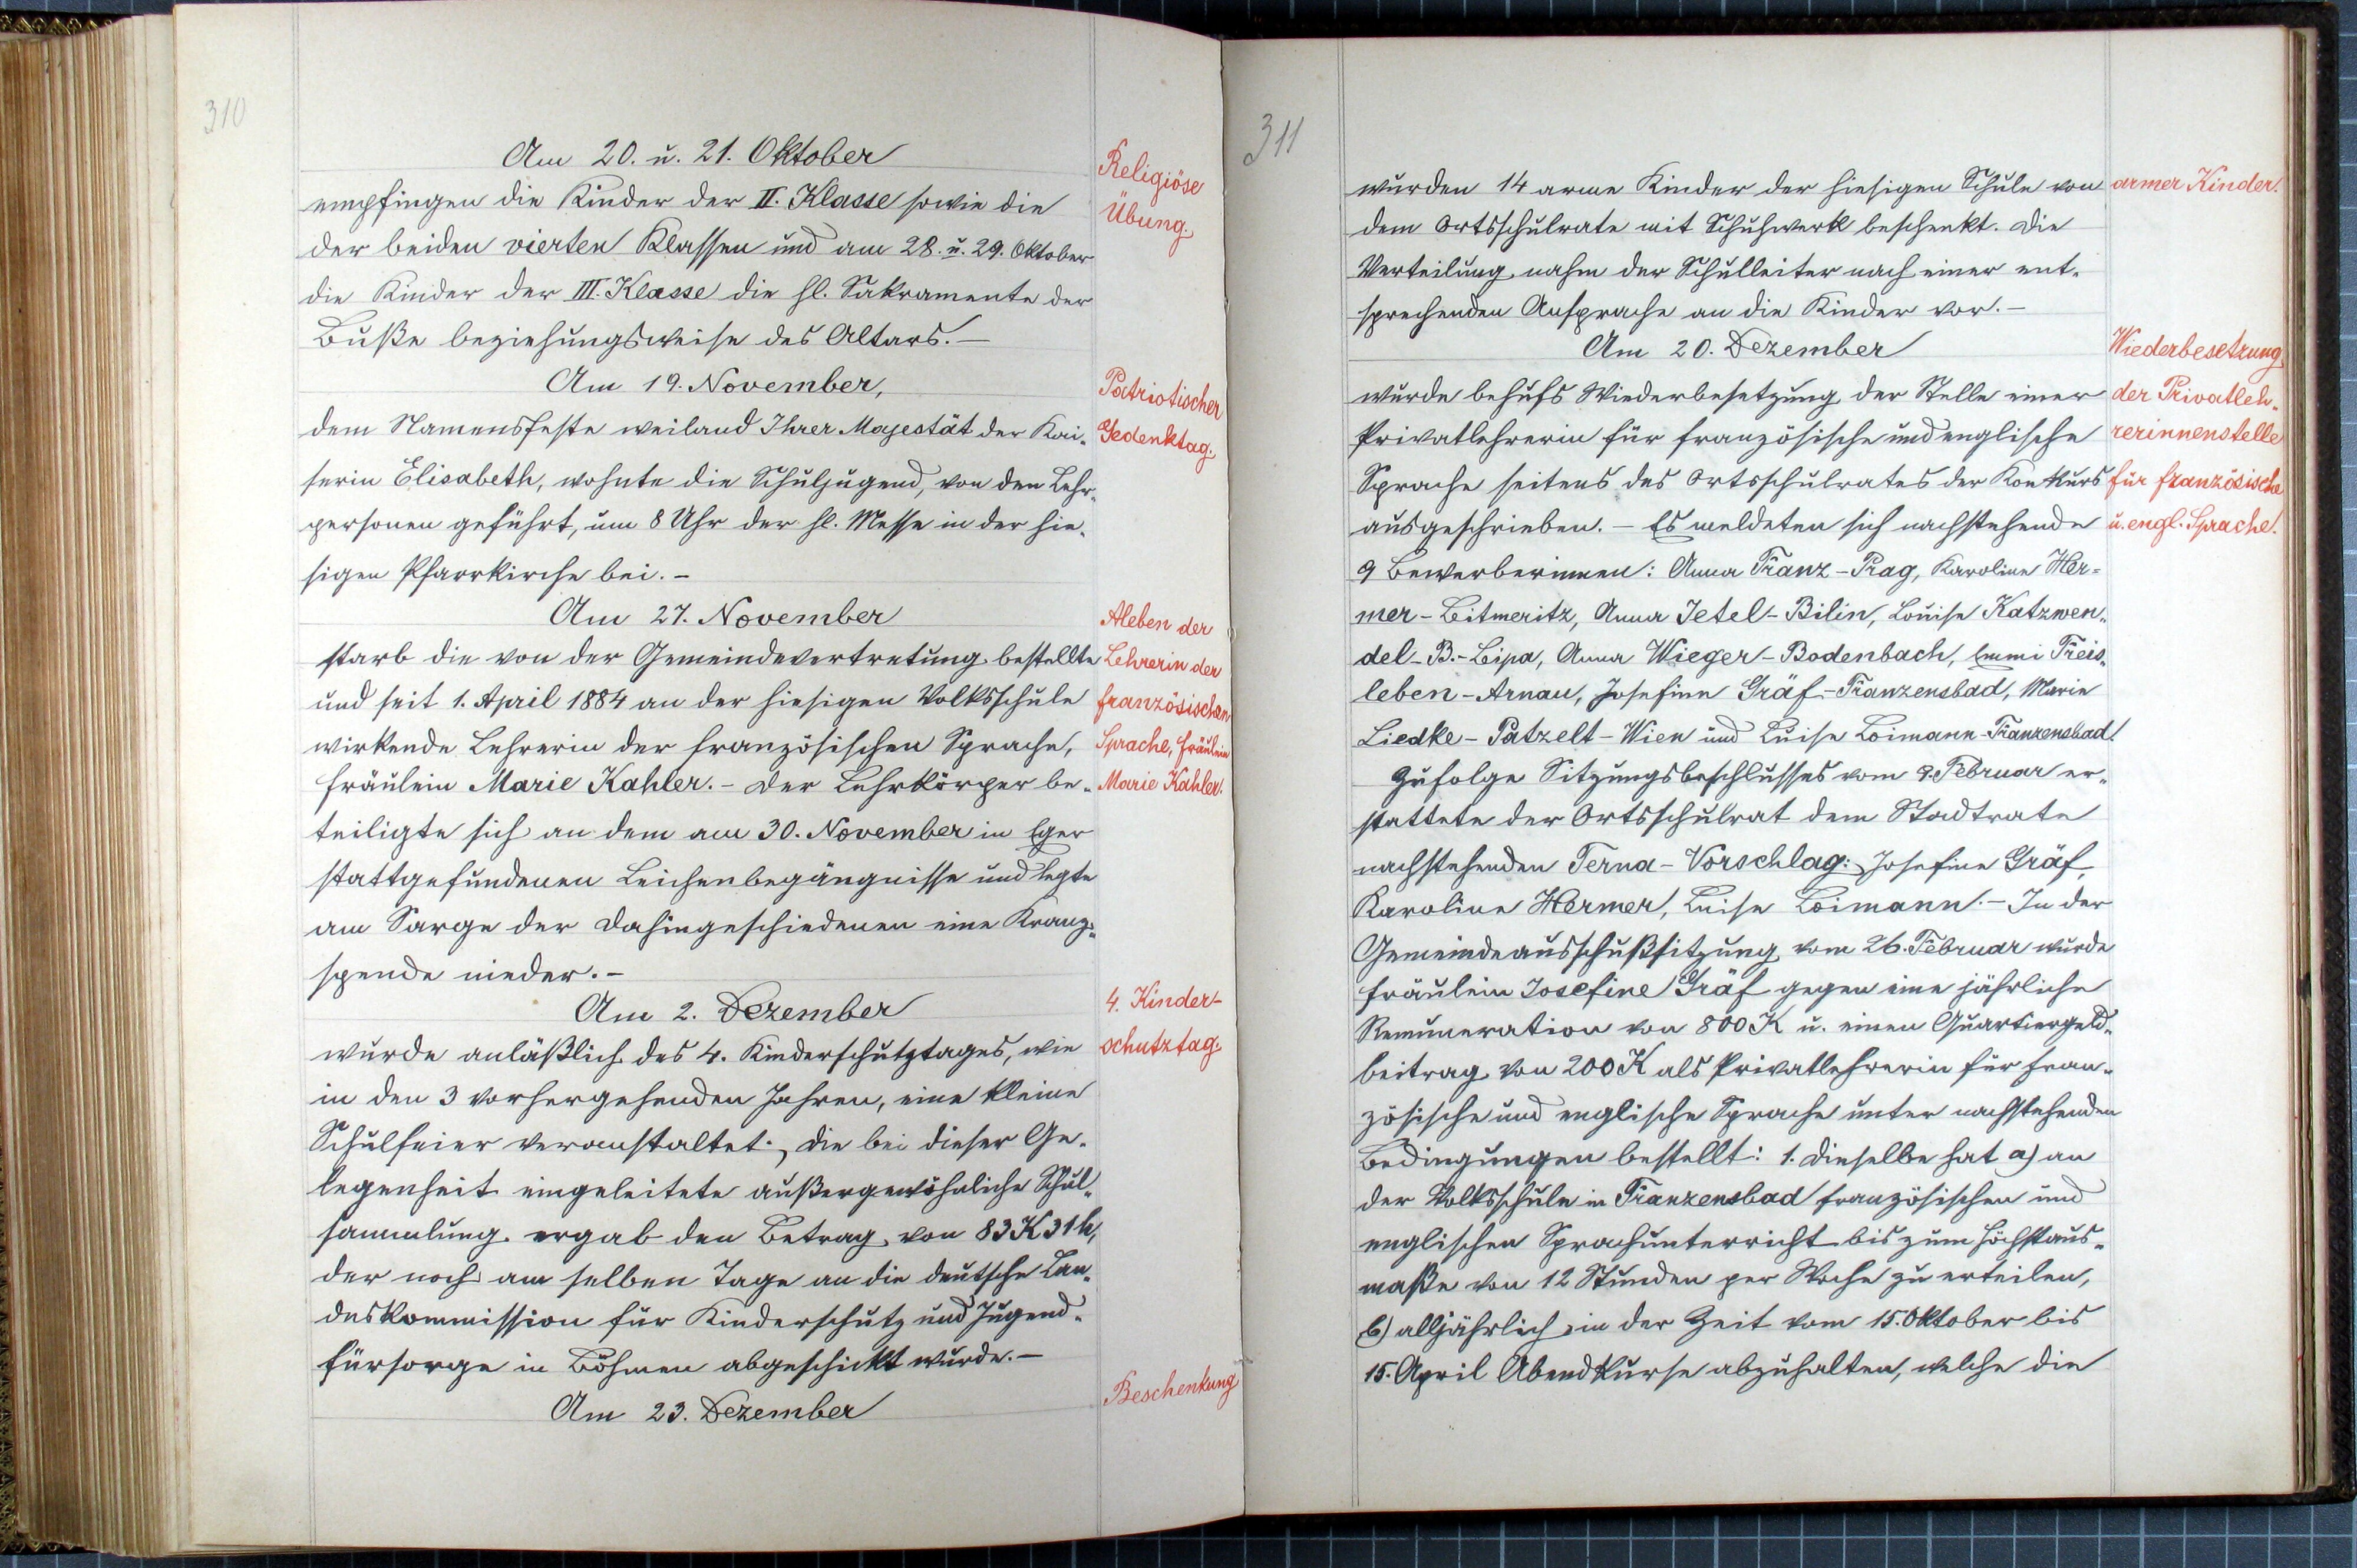 310
Am 20. u. 21. Oktober
empfingen die Kinder der II. Klasse sowie die
der beiden vierten Klassen und am 28. u. 29. Oktober
die Kinder der III. Klasse die hl. Sakramente der
Buße beziehungsweise des Altars. –
Religiöse
Übung.
Am 19. November,
dem Namensfeste weiland Ihrer Majestät der Kai-
serin Elisabeth, wohnte die Schuljugend, von den Lehr-
personen geführt, um 8 Uhr der hl. Messe in der hie-
sigen Pfarrkirche bei. –
Patriotischer
Gedenktag.
Am 27. November
starb die von der Gemeindevertretung bestellte
und seit 1. April 1884 an der hiesigen Volksschule
wirkende Lehrerin der französischen Sprache,
Fräulein Marie Kahler. – Der Lehrkörper be-
teiligte sich an dem am 30. November in Eger
stattgefundenen Leichenbegängnisse und legte
am Sarge der Dahingeschiedenen eine Kranz-
spende nieder. –
Ableben der
Lehrerin der
französischen
Sprache, Fräulein
Marie Kahler.
Am 2. Dezember
wurde anläßlich des 4. Kinderschutztages, wie
in den 3 vorhergehenden Jahren, eine kleine
Schulfeier veranstaltet; die bei dieser Ge-
legenheit eingeleitete außergewöhnliche Schul-
sammlung ergab den Betrag von 83 K 31 h,
der noch am selben Tage an die deutsche Lan-
deskommission für Kinderschutz und Jugend-
fürsorge in Böhmen abgeschickt wurde. –
4. Kinder-
schutztag.
Am 23. Dezember
Beschenkung
311
wurden 14 arme Kinder der hiesigen Schule von
dem Ortsschulrate mit Schuhwerk beschenkt. Die
Verteilung nahm der Schulleiter nach einer ent-
sprechenden Ansprache an die Kinder vor. –
armer Kinder.
Am 20. Dezember
wurde behufs Wiederbesetzung der Stelle einer
Privatlehrerin für französische und englische
Sprache seitens des Ortsschulrates der Konkurs
ausgeschrieben. – Es meldeten sich nachstehende
9 Bewerberinnen: Anna Franz-Prag, Karoline Her-
mer-Leitmeritz, Anna Jetel-Bilin, Louise Katzwen-
del-B.-Leipa, Anna Wieger-Bodenbach, Emmi Freis-
leben-Arnau, Josefine Gräf-Franzensbad, Marie
Liedke-Patzelt-Wien und Luise Loimann-Franzensbad.
Zufolge Sitzungsbeschlusses vom 9. Februar er-
stattete der Ortsschulrat dem Stadtrate
nachstehenden Terna-Vorschlag: Josefine Gräf,
Karoline Hermer, Luise Loimann. – In der
Gemeindeausschußsitzung vom 26. Februar wurde
Fräulein Josefine Gräf gegen eine jährliche
Remuneration von 800 K u. einen Quartiergeld-
beitrag von 200 K als Privatlehrerin für fran-
zösische und englische Sprache unter nachstehenden
Bedingungen bestellt: 1. Dieselbe hat a) an
der Volksschule in Franzensbad französischen und
englischen Sprachunterricht bis zum Höchstaus-
maße von 12 Stunden per Woche zu erteilen,
b) alljährlich in der Zeit vom 15. Oktober bis
15. April Abendkurse abzuhalten, welche die
Wiederbesetzung
der Privatleh-
rerinnenstelle
für französische
u. engl. Sprache.